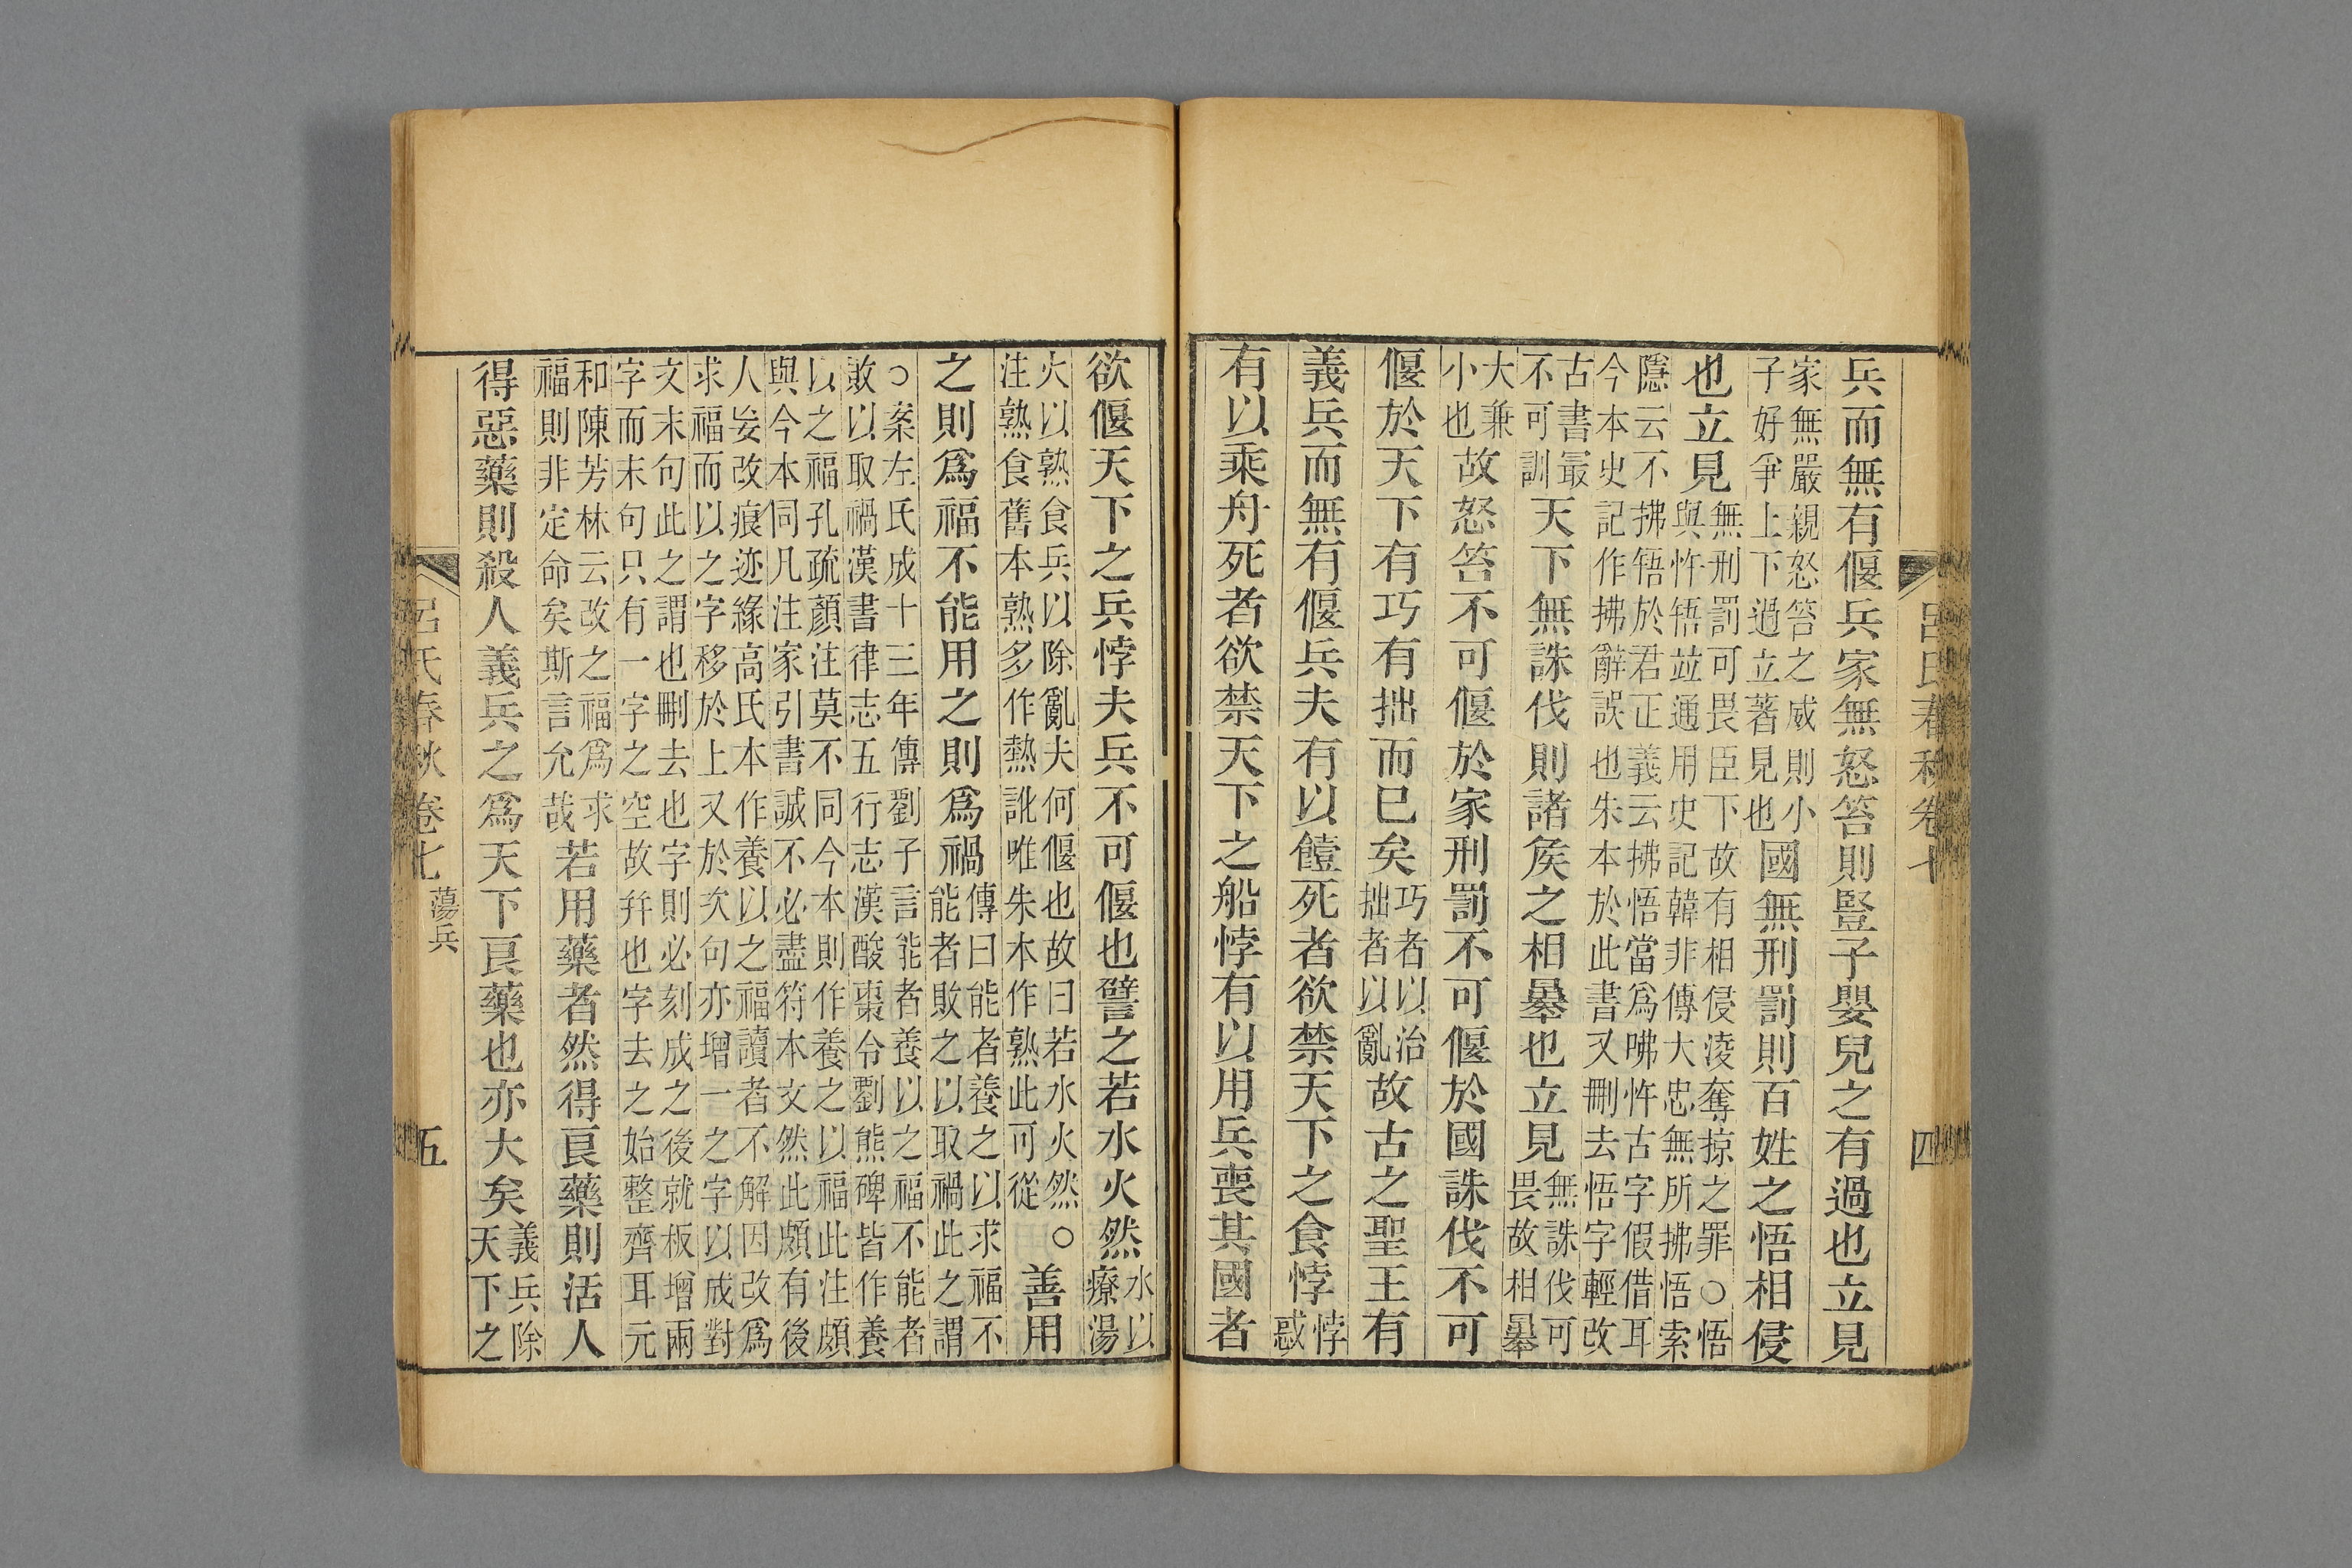 呂氏春秋卷七 四
兵而無有偃兵家無怒笞則豎子嬰兒之有過也立見
家無嚴親怒笞之威則小
子好爭上下過立著見也
國無刑罰則百姓之悟相侵
也立見
無刑罰可畏臣下故有相侵淩奪掠之罪○悟
與忤牾竝通用史記韓非傳大忠無所拂悟索
隱云不拂牾於君正義云拂悟當爲咈忤古字假借耳
今本史記作拂辭誤也朱本於此書又刪去悟字輕改
古書最
不可訓
天下無誅伐則諸矦之相㬥也立見
無誅伐可
畏故相㬥
大兼
小也
故怒笞不可偃於家刑罰不可偃於國誅伐不可
偃於天下有巧有拙而已矣
巧者以治
拙者以亂
故古之聖王有
義兵而無有偃兵夫有以饐死者欲禁天下之食悖
悖
惑
有以乘舟死者欲禁天下之船悖有以用兵喪其國者
欲偃天下之兵悖夫兵不可偃也譬之若水火然
水以
療湯
火以熟食兵以除亂夫何偃也故曰若水火然○
注熟食舊本熟多作熱訛唯朱本作熟此可從
善用
之則爲福不能用之則爲禍
傳曰能者養之以求福不
能者敗之以取禍此之謂
○案左氏成十三年傳劉子言能者養以之福不能者
敗以取禍漢書律志五行志漢酸棗令劉熊碑皆作養
以之福孔疏顏注莫不同今本則作養之以福此注頗
與今本同凡注家引書誠不必盡符本文然此頗有後
人妄改痕迹緣高氏本作養以之福讀者不解因改爲
求福而以之字移於上又於次句亦增一之字以成對
文末句此之謂也刪去也字則必刻成之後就板增兩
字而末句只有一字之空故幷也字去之始整齊耳元
和陳芳林云改之福爲求
福則非定命矣斯言允哉
若用藥者然得良藥則活人
得惡藥則殺人義兵之爲天下良藥也亦大矣
義兵除
天下之
呂氏春秋卷七 蕩兵 五